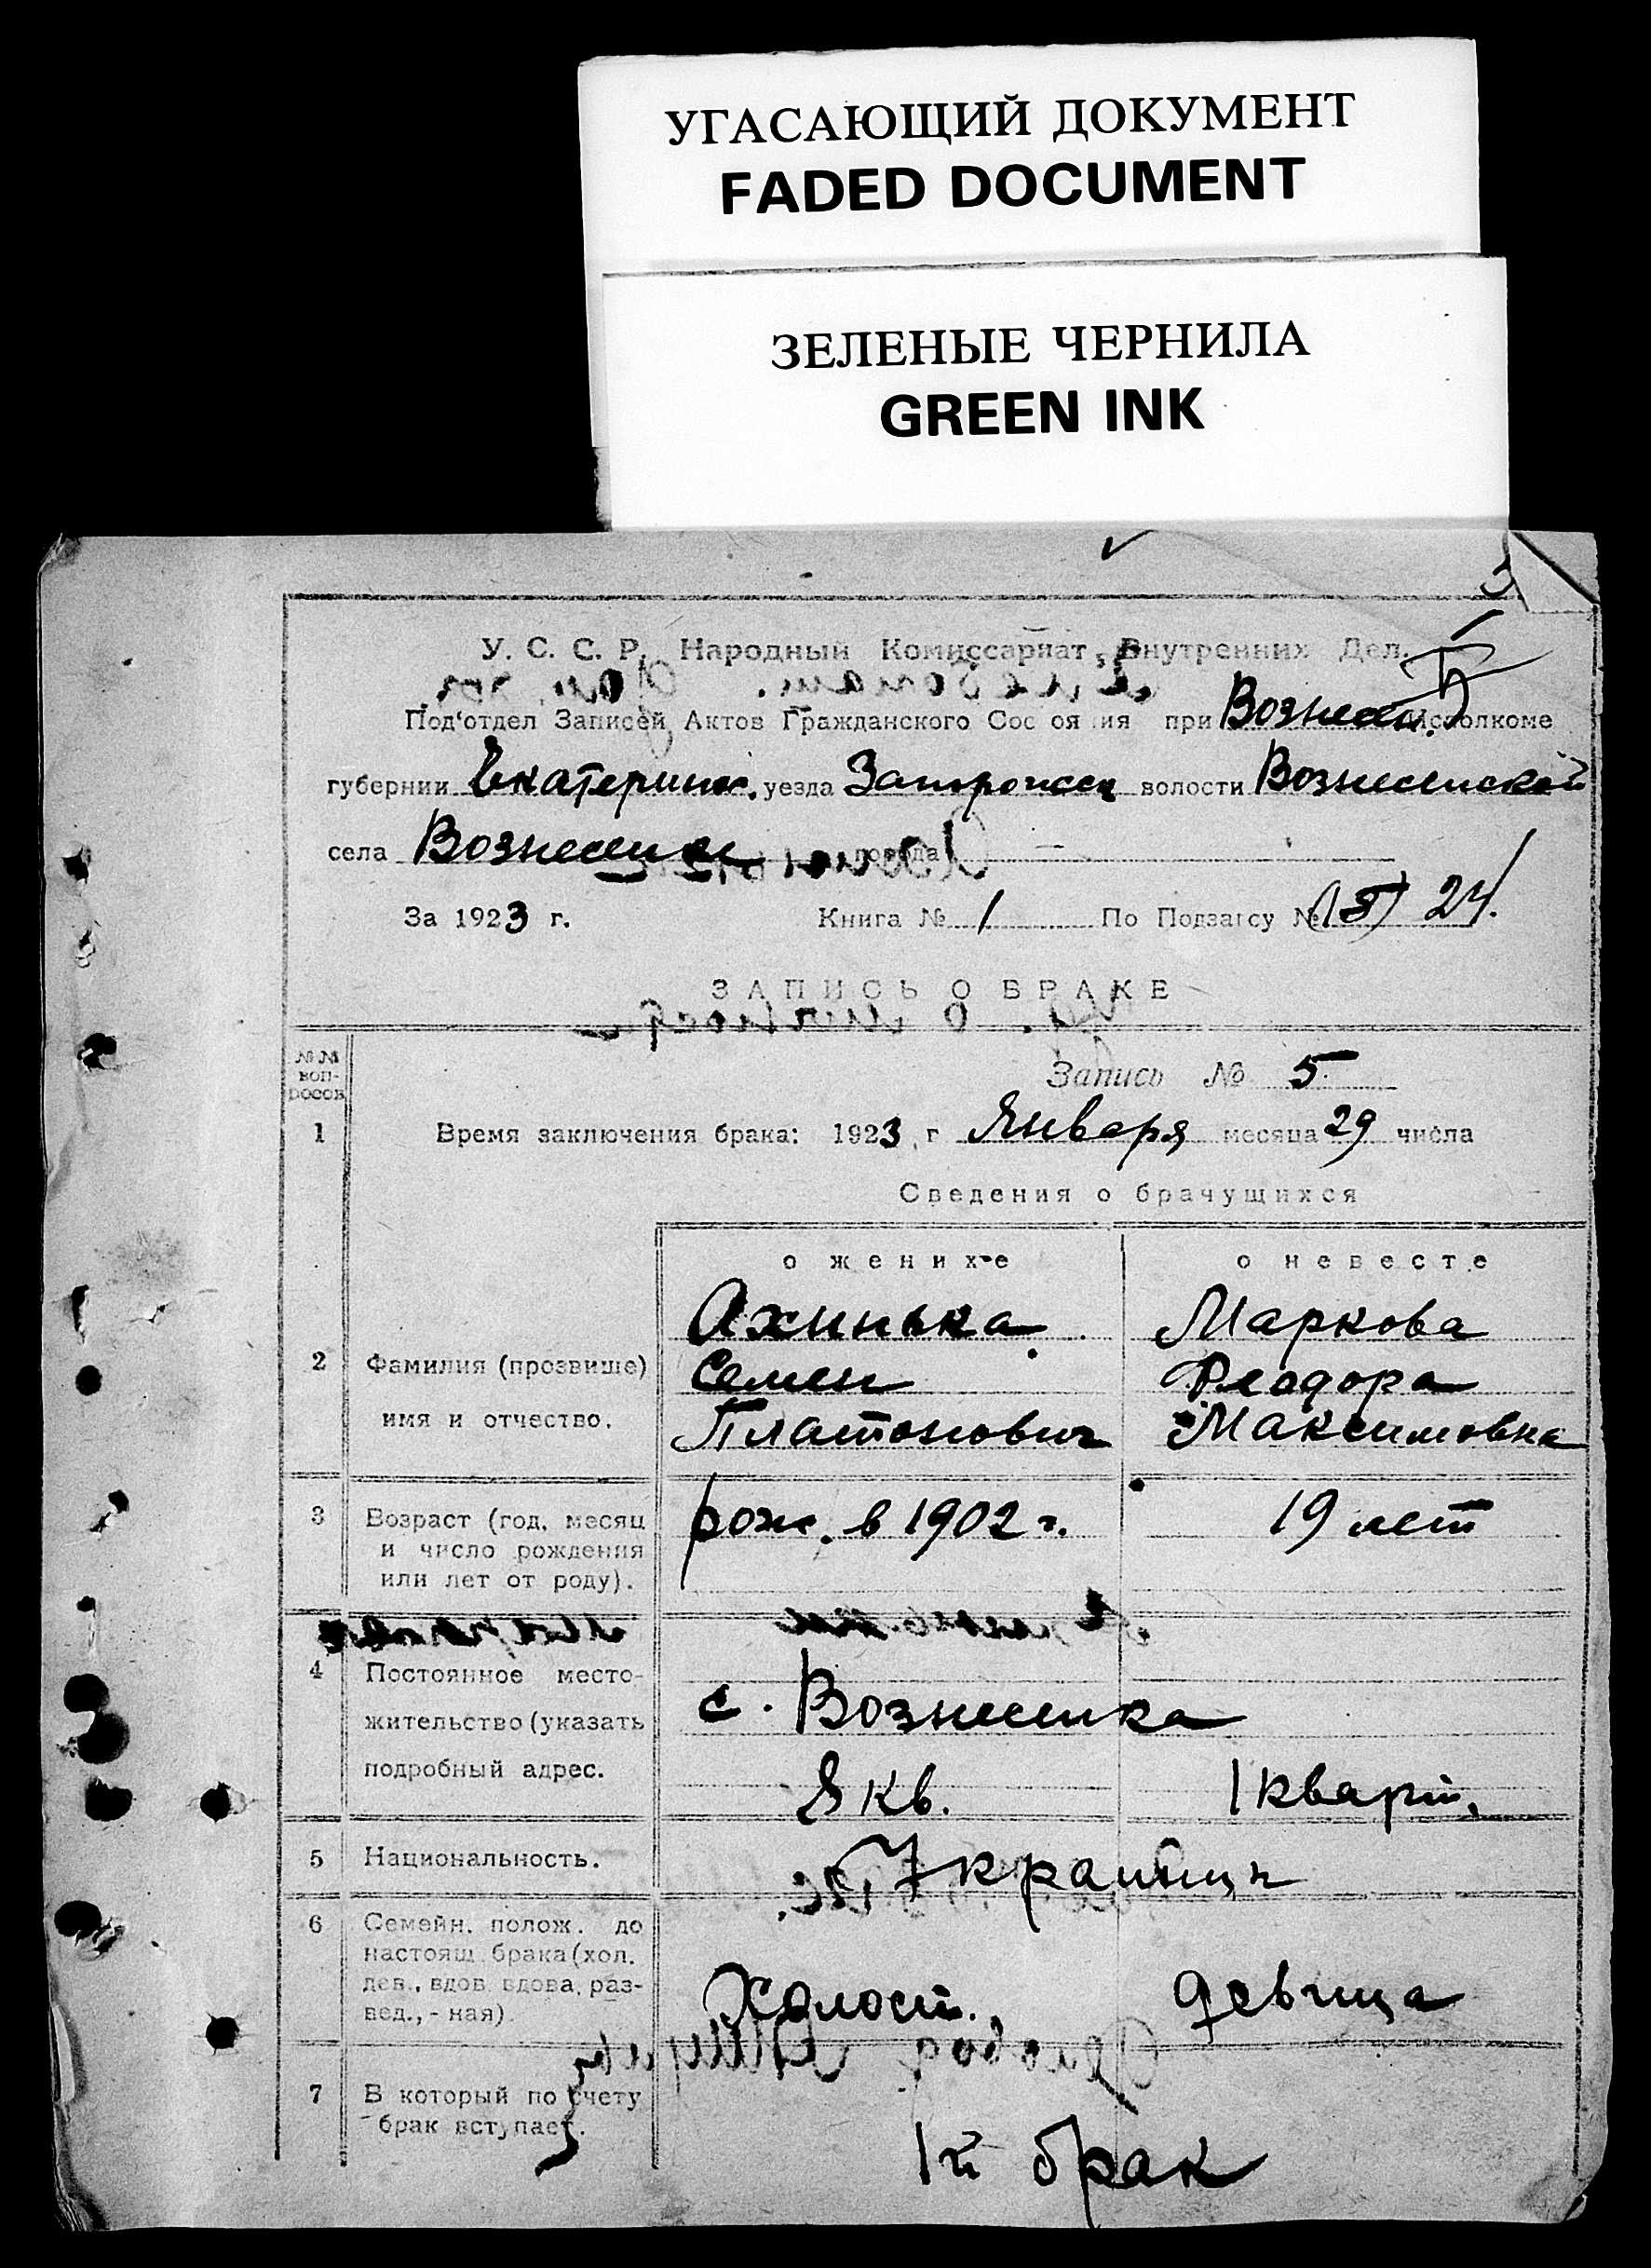 УГАСАЮЩИЙ ДОКУМЕНТ
FADED DOCUMENT
ЗЕЛЕНЫЕ ЧЕРНИЛА
GREEN INK
У. С. С. Р. Народный Комиссариат Внутренних Дел.
Под'отдел Записей Актов Гражданского Сос оя ия при Вознесен. Исполкоме
губернии Екатерин. уезда Запорожск волости Вознесенской
села Вознесенки города —
За 1923 г. Книга № 1 По Подзагсу № 24.
ЗАПИСЬ О БРАКЕ
№№ воп-
росов
Запись № 5
1 Время заключения брака: 1923 г Января месяца 29 числа
Сведения о брачущихся
о женихе о невесте
Ахинька Маркова
2 Фамилия (прозвище) Семен Феодора
имя и отчество. Платонович Максимовна
3 Возраст (год, месяц рож. в 1902 г. 19 лет
и число рождения
или лет от роду).
4 Постоянное место-
жительство (указать с. Вознесенка
подробный адрес. 8 кв. 1 кварт.
5 Национальность. Украинцы
6 Семейн. полож. до
настоящ брака (хол.
дев., вдов. вдова, раз-
вед., - ная). Холост., девица
7 В который по счету
брак вступает. 1й брак